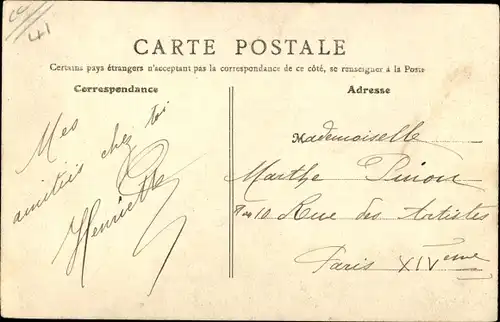 41
CARTE POSTALE
Certains pays étrangers n'acceptant pas la correspondance de ce côté, se renseigner à la Poste
Correspondance
Adresse
Mes
amitiés chez toi
Henriette
Mademoiselle
Marthe Pinon
10 Rue des Artistes
Paris XIVème